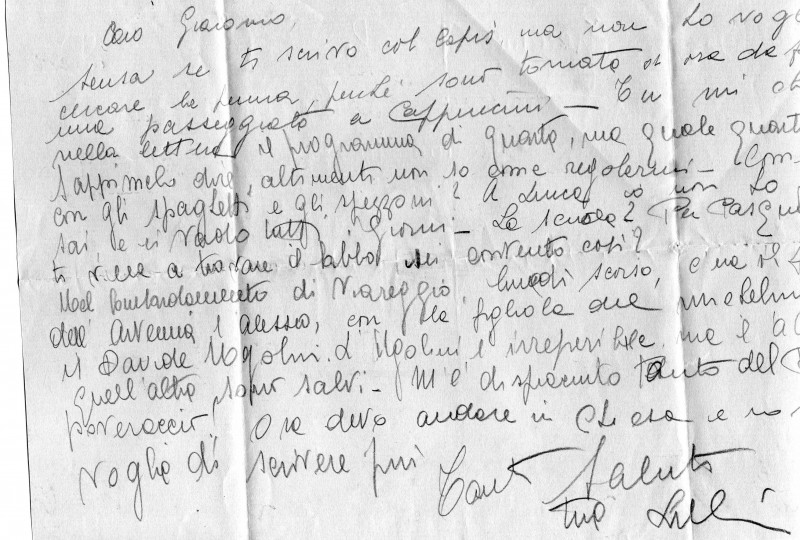 Caro Giacomo,
scusa se ti scrivo col lapis, ma non ho voglia
cercare la penna, perché sono tornata or ora da
una passeggiata a Cappuccini – Tu mi
nella lettera il programma di quarta, ma quale
sappimelo dire, altrimenti non so come regolarmi – Com-
con gli spaghetti e gli spezzoni? A Lucca io non
sai, e ci vado tutti i giorni – La scuola? Per Pasqua
ti viene a trovare il babbo, sei contento così?
Nel bombardamento di Viareggio lunedì scorso, c'era il
dell'Antenna e Alessio, con la figliola due
il Davide Ugolini. L'Ugolini è irreperibile, ma
quell'altri sono salvi – M'è dispiaciuto tanto del
poveraccio! Ora devo andare in Chiesa e no
voglia di scrivere più
Tanti Saluti
tua